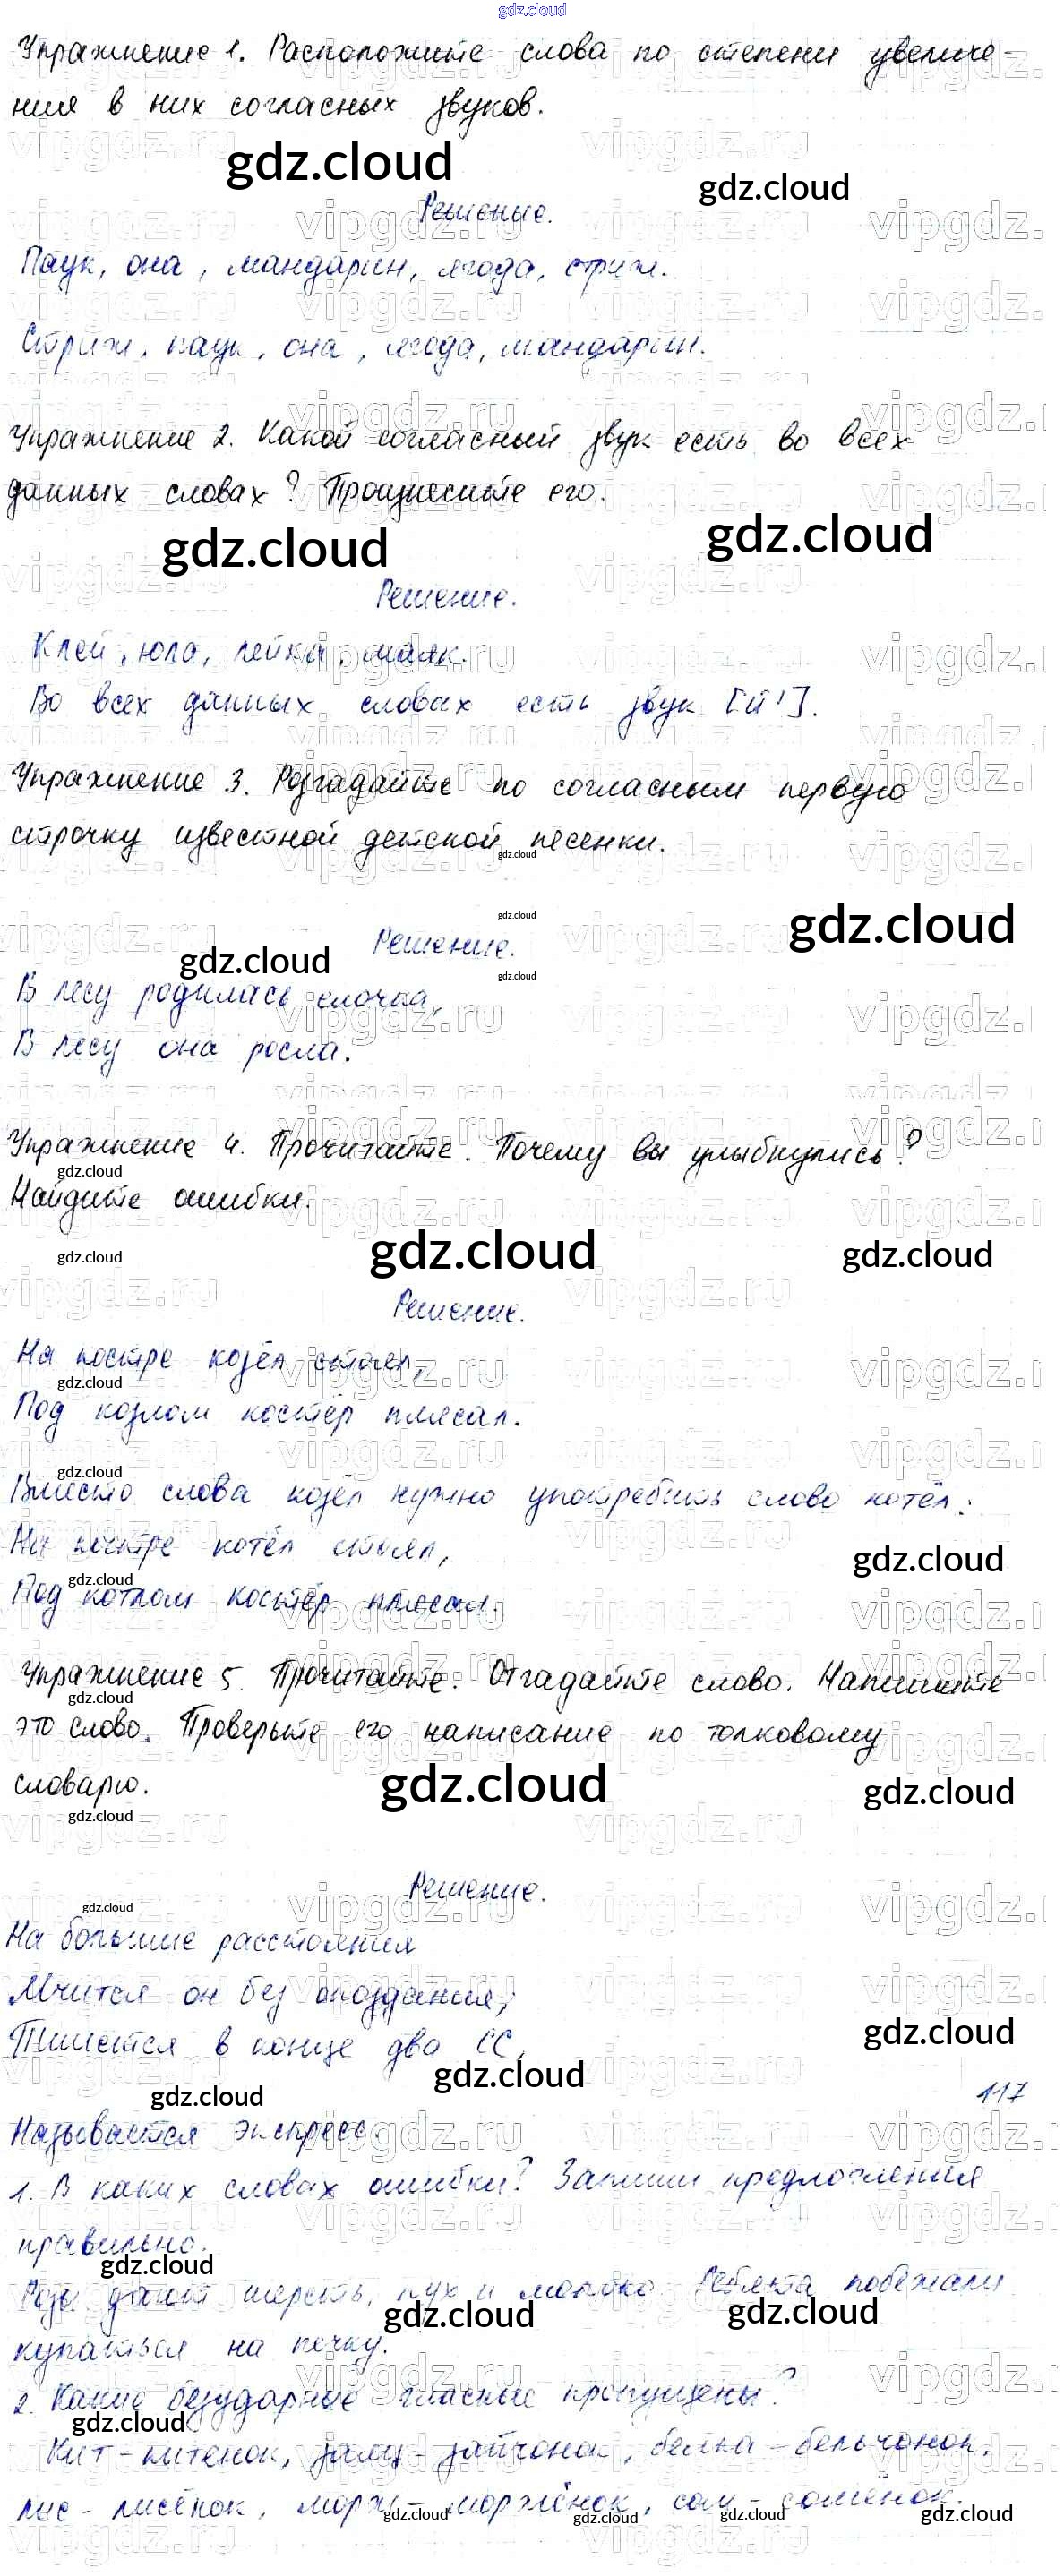 gdz.cloud
Упражнение 1. Расположите слова по степени увеличе-
ния в них согласных звуков.
gdz.cloud
gdz.cloud
Решение.
Паук, она, мандарин, ягода, стриж.
Стриж, паук, она, ягода, мандарин.
Упражнение 2. Какой согласный звук есть во всех
данных словах? Произнесите его.
gdz.cloud gdz.cloud
Решение.
Клей, юла, лейка, маяк.
Во всех данных словах есть звук [й'].
Упражнение 3. Разгадайте по согласным первую
строчку известной детской песенки.
gdz.cloud
gdz.cloud
gdz.cloud
Решение.
gdz.cloud
gdz.cloud
В лесу родилась елочка,
В лесу она росла.
Упражнение 4. Прочитайте. Почему вы улыбнулись?
gdz.cloud
Найдите ошибки.
gdz.cloud gdz.cloud gdz.cloud
Решение.
На костре козёл стоял,
gdz.cloud
Под козлом костёр плясал.
gdz.cloud
Вместо слова козёл нужно употребить слово котёл.
На костре котёл стоял,
gdz.cloud
gdz.cloud
Под котлом костёр плясал.
Упражнение 5. Прочитайте. Отгадайте слово. Напишите
gdz.cloud
это слово. Проверьте его написание по толковому
словарю.
gdz.cloud gdz.cloud
gdz.cloud
Решение.
gdz.cloud
На большие расстояния
Мчится он без опоздания,
Пишется в конце два СС,
gdz.cloud
gdz.cloud
gdz.cloud
117
Называется экспресс.
1. В каких словах ошибки? Запиши предложения
правильно.
gdz.cloud
дают шерсть, пух и молоко. Ребята побежали
gdz.cloud gdz.cloud
купаться на печку.
2. Какие безударные гласные пропущены?
gdz.cloud
Кит - китенок, заяц - зайчонок, белка - бельчонок,
лис - лисёнок, морж - моржёнок, сом - сомёнок.
gdz.cloud gdz.cloud gdz.cloud gdz.cloud